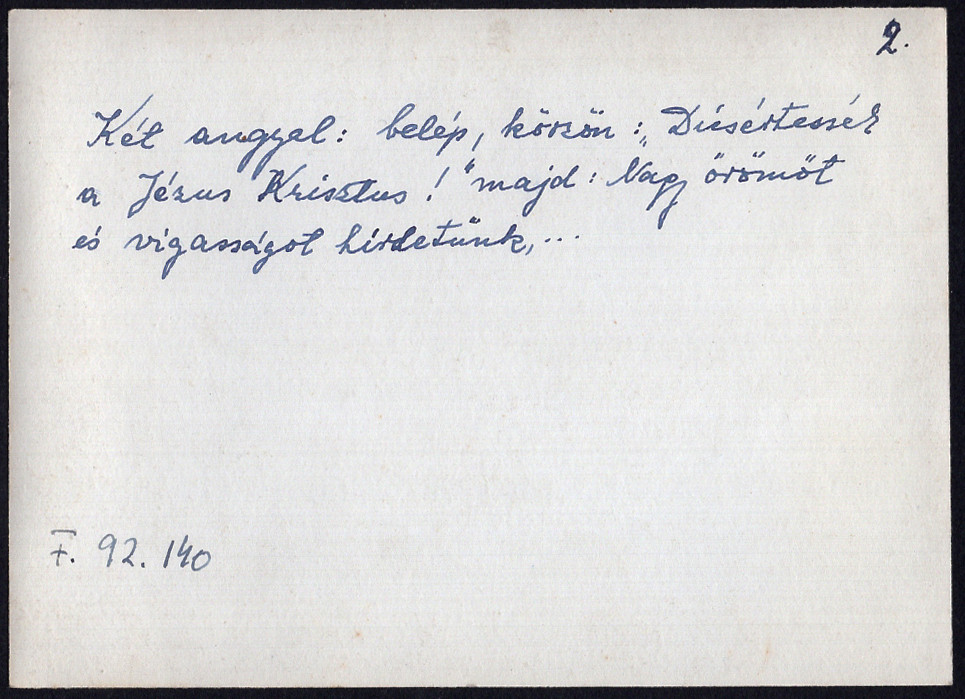 2.
Két angyal: belép, köszön: „Dícsértessék
a Jézus Krisztus!" majd: Nagy örömöt
és vígasságot hírdetünk,...
F. 92. 140